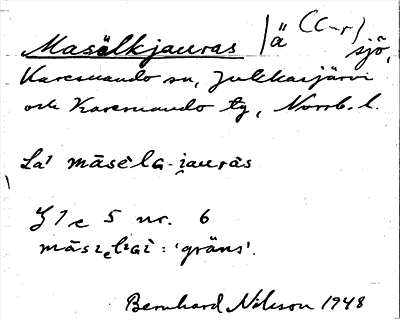 Masälkjauras /ä (C-r) sjö,
Karesuando sn, Jukkasjärvi
och Karesuando tg, Norrb. l.
La1 māsēlɢ-jaurās
J 1 e 5 nr. 6
: 'gräns'.
Bernhard Nilsson 1948